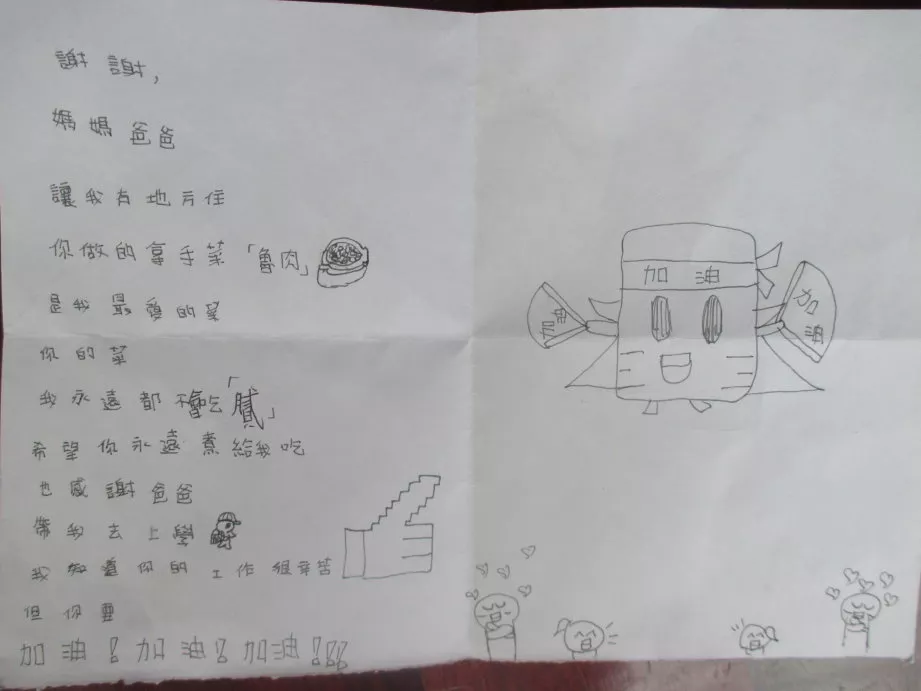 謝謝,
媽媽爸爸
讓我有地方住
你做的拿手菜「魯肉」
是我最愛的菜
你的菜
我永遠都不會吃「膩」
希望你永遠煮給我吃
也感謝爸爸
帶我去上學
我知道你的工作很辛苦
但你要
加油!加油!加油!!!
加油
加油
加油